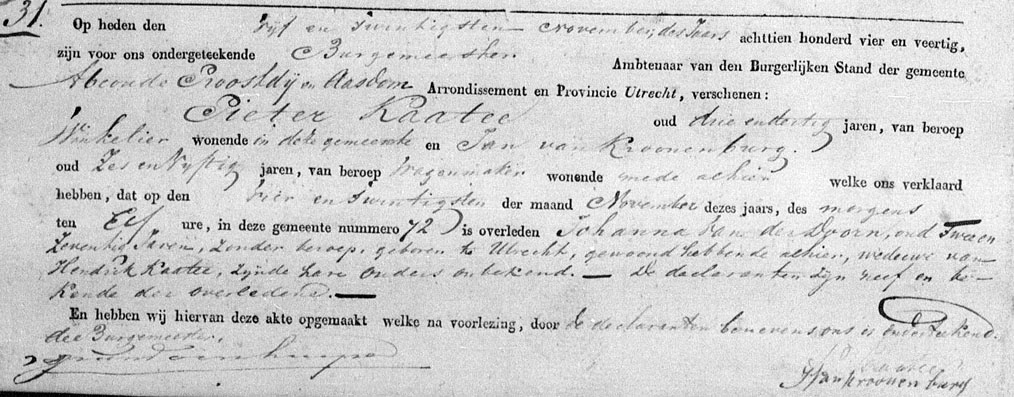 31.
Op heden den vijf en twintigsten November, des Jaars achttien honderd vier en veertig,
zijn voor ons ondergeteekende Burgemeester Ambtenaar van den Burgerlijken Stand der gemeente
Abcoude Proostdij en Aasdom Arrondissement en Provincie Utrecht, verschenen:
Pieter Kaatee oud drie en dertig jaren, van beroep
Winkelier wonende in deze gemeente en Jan van Kroonenburg.
oud Zes en Vijftig jaren, van beroep Wagenmaker wonende mede alhier welke ons verklaard
hebben, dat op den vier en twintigsten der maand November dezes jaars, des morgens
ten Elf ure, in deze gemeente nummero 72 is overleden Johanna van der Doorn, oud Twee en
Zeventig Jaren, zonder beroep, geboren te Utrecht, gewoond hebbende alhier, weduwe van
Hendrik Kaatee, zijnde hare ouders onbekend. — De declaranten zijn neef en be-
kende der overledene. —
En hebben wij hiervan deze akte opgemaakt welke na voorlezing, door de declaranten benevens ons is onderteekend.
De Burgemeester,
P Kaatee
J van Kroonenburg